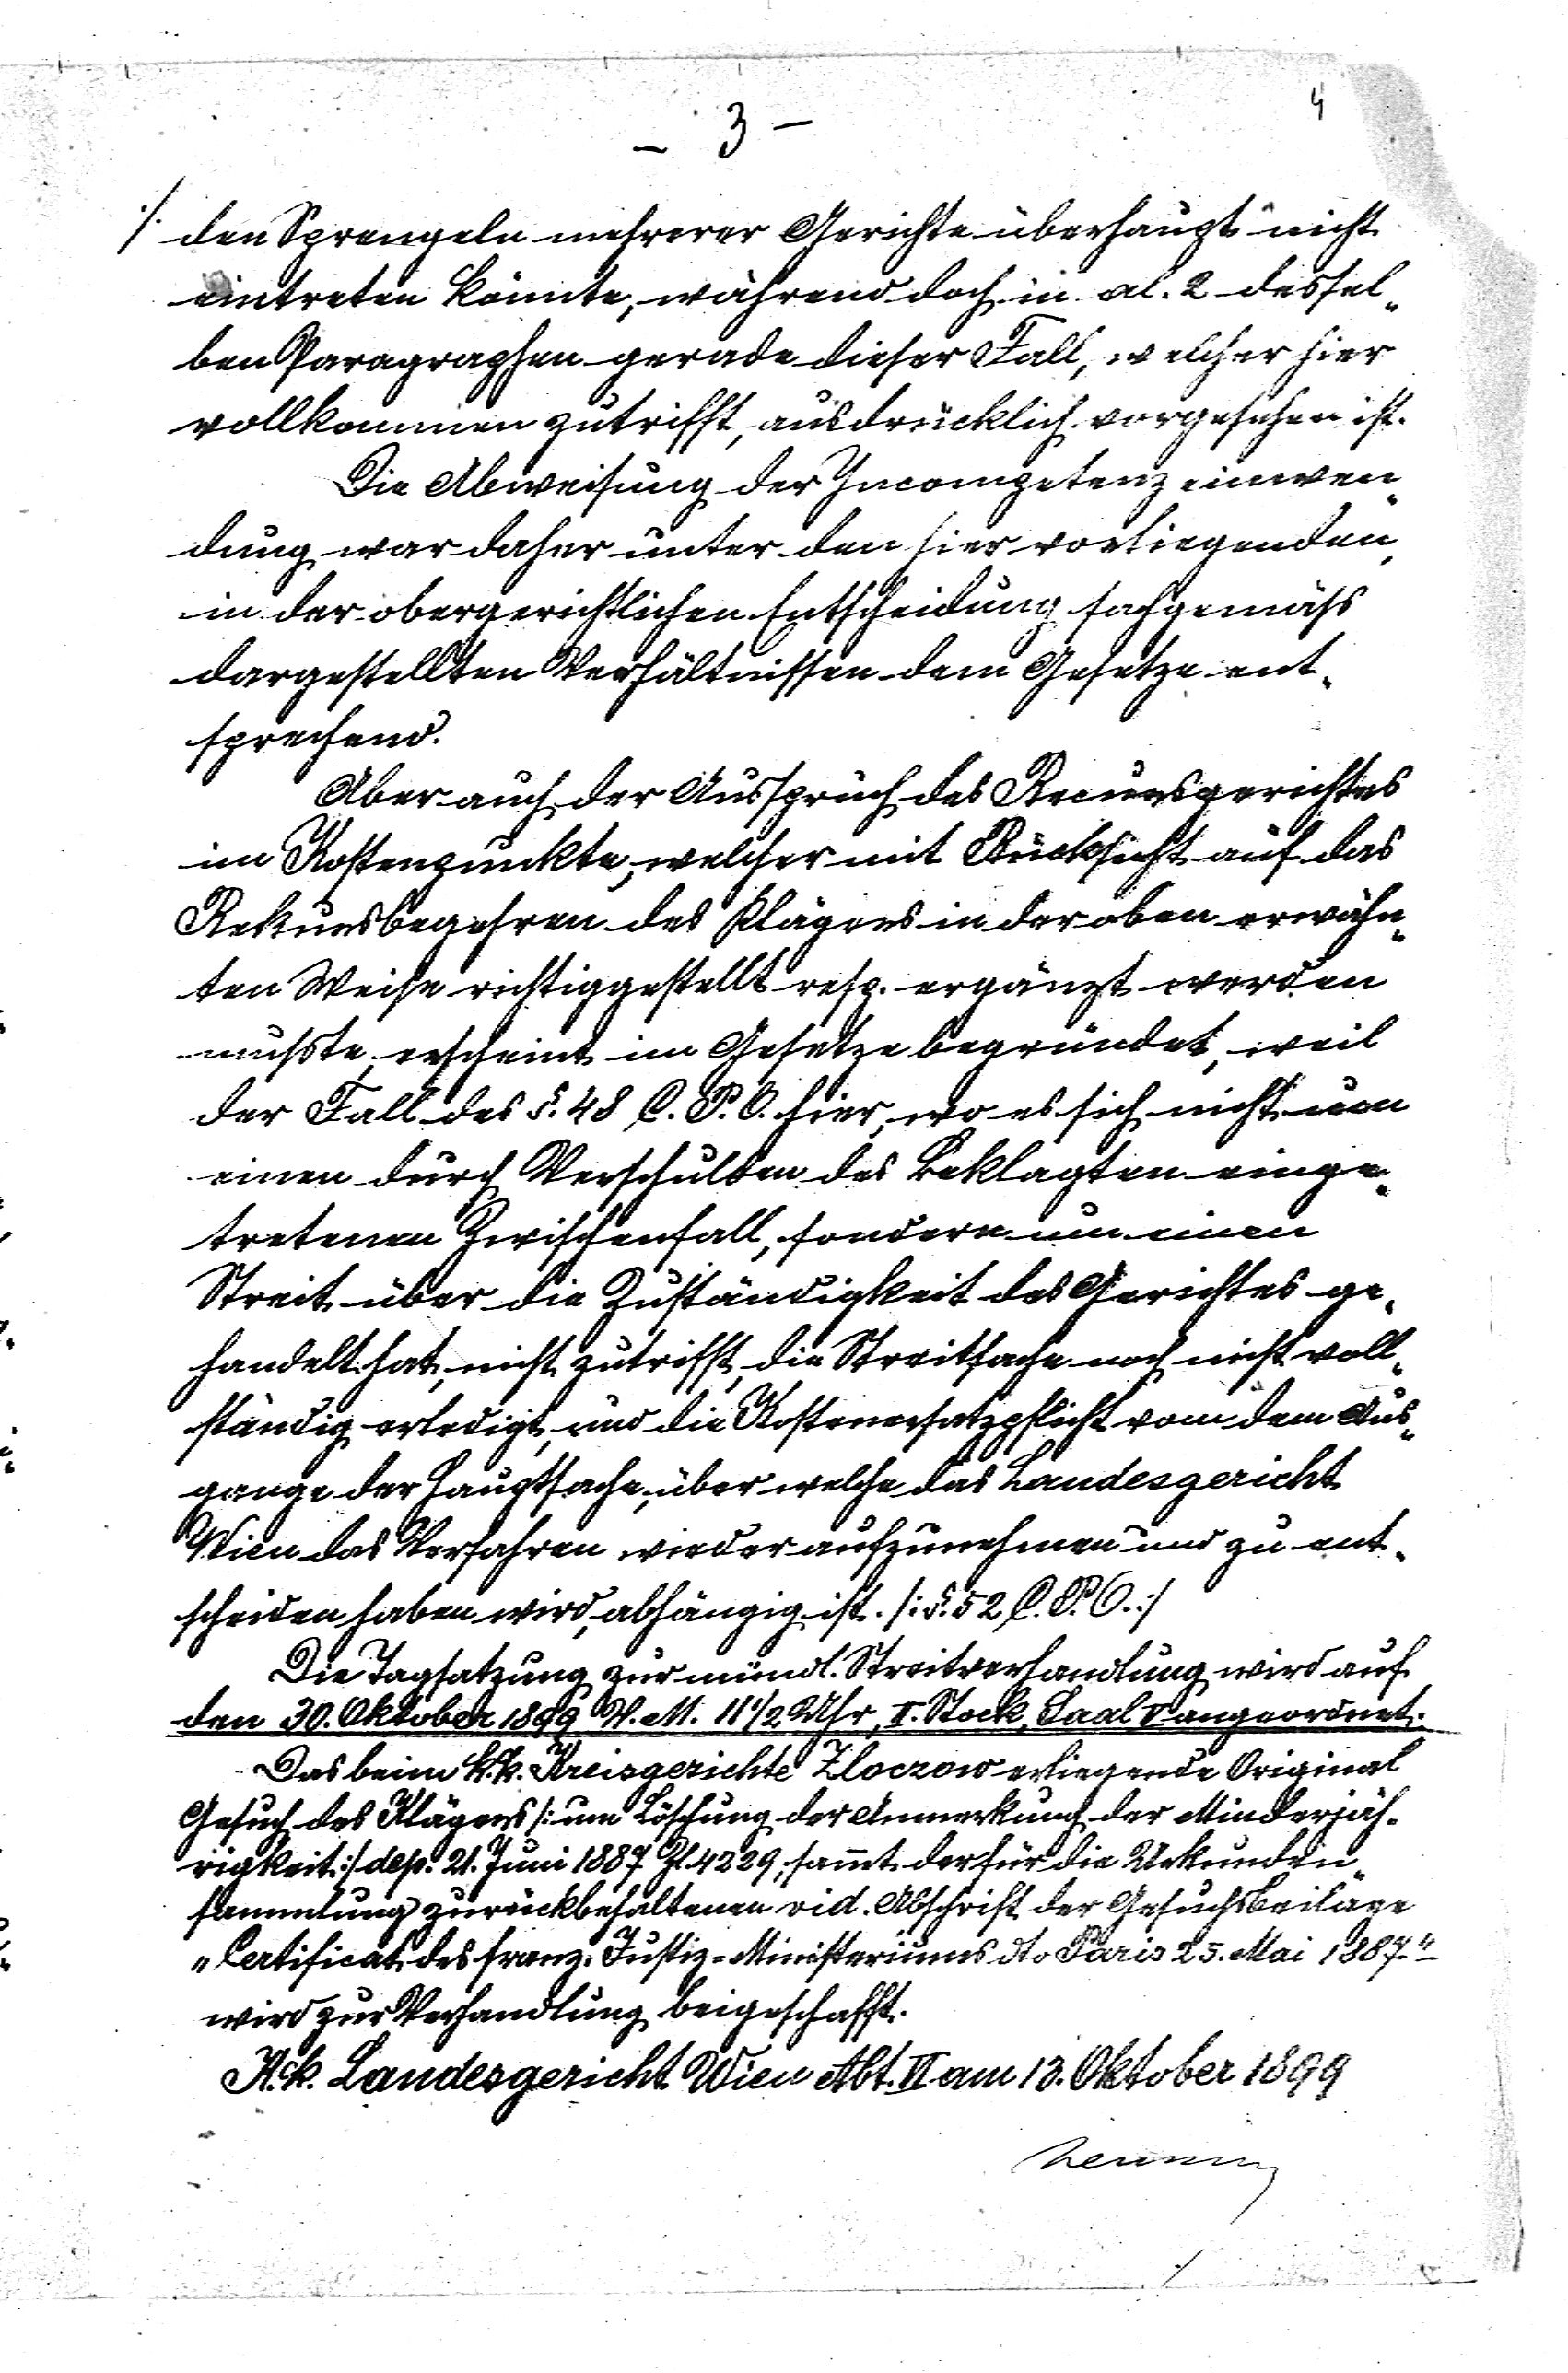 4
- 3 -
./. den Sprengeln mehrerer Gerichte überhaupt nicht
eintreten könnte, während doch in al. 2 dessel„
ben Paragraphen gerade dieser Fall, welcher hier
vollkommen zutrifft, ausdrücklich vorgesehen ist.
Die Abweisung der Incompetenzeinwen„
dung war daher unter den hier vorliegenden,
in der obergerichtlichen Entscheidung sachgemäß
dargestellten Verhältnissen dem Gesetze ent„
sprechend.
Aber auch der Ausspruch des Recursgerichtes
im Kostenpunkte, welcher mit Rücksicht auf das
Rekursbegehren des Klägers in der oben erwähn„
ten Weise richtiggestellt resp. ergänzt werden
mußte, erscheint im Gesetze begründet, weil
der Fall des §. 48 C. P. O. hier, wo es sich nicht um
einen durch Verschulden des Beklagten einge„
tretenen Zwischenfall, sondern um einen
Streit über die Zuständigkeit des Gerichtes ge„
handelt hat, nicht zutrifft, die Streitsache noch nicht voll„
ständig erledigt, und die Kostenersatzpflicht vom dem Aus„
gange der Hauptsache, über welche das Landesgericht
Wien das Verfahren wieder aufzunehmen und zu ent„
scheiden haben wird, abhängig ist. /: §. 52 C. P. O. :/
Die Tagsatzung zur mündl. Streitverhandlung wird auf
den 30. Oktober 1899 V. M. 11 1/2 Uhr, II. Stock, Saal V angeordnet.
Das beim k. k. Kreisgerichte Zloczow erliegende Original
Gesuch des Klägers /: um Löschung der Anmerkung der Minderjäh„
rigkeit :/ de pr. 21. Juni 1887 Zl. 4229, sammt der für die Urkunden„
sammlung zurückbehaltenen vid. Abschrift der Gesuchsbeilage
„Certificat des franz. Justiz-Ministeriums dto Paris 25. Mai 1887"
wird zur Verhandlung beigeschafft.
K. k. Landesgericht Wien Abt. VI am 13. Oktober 1899
./.